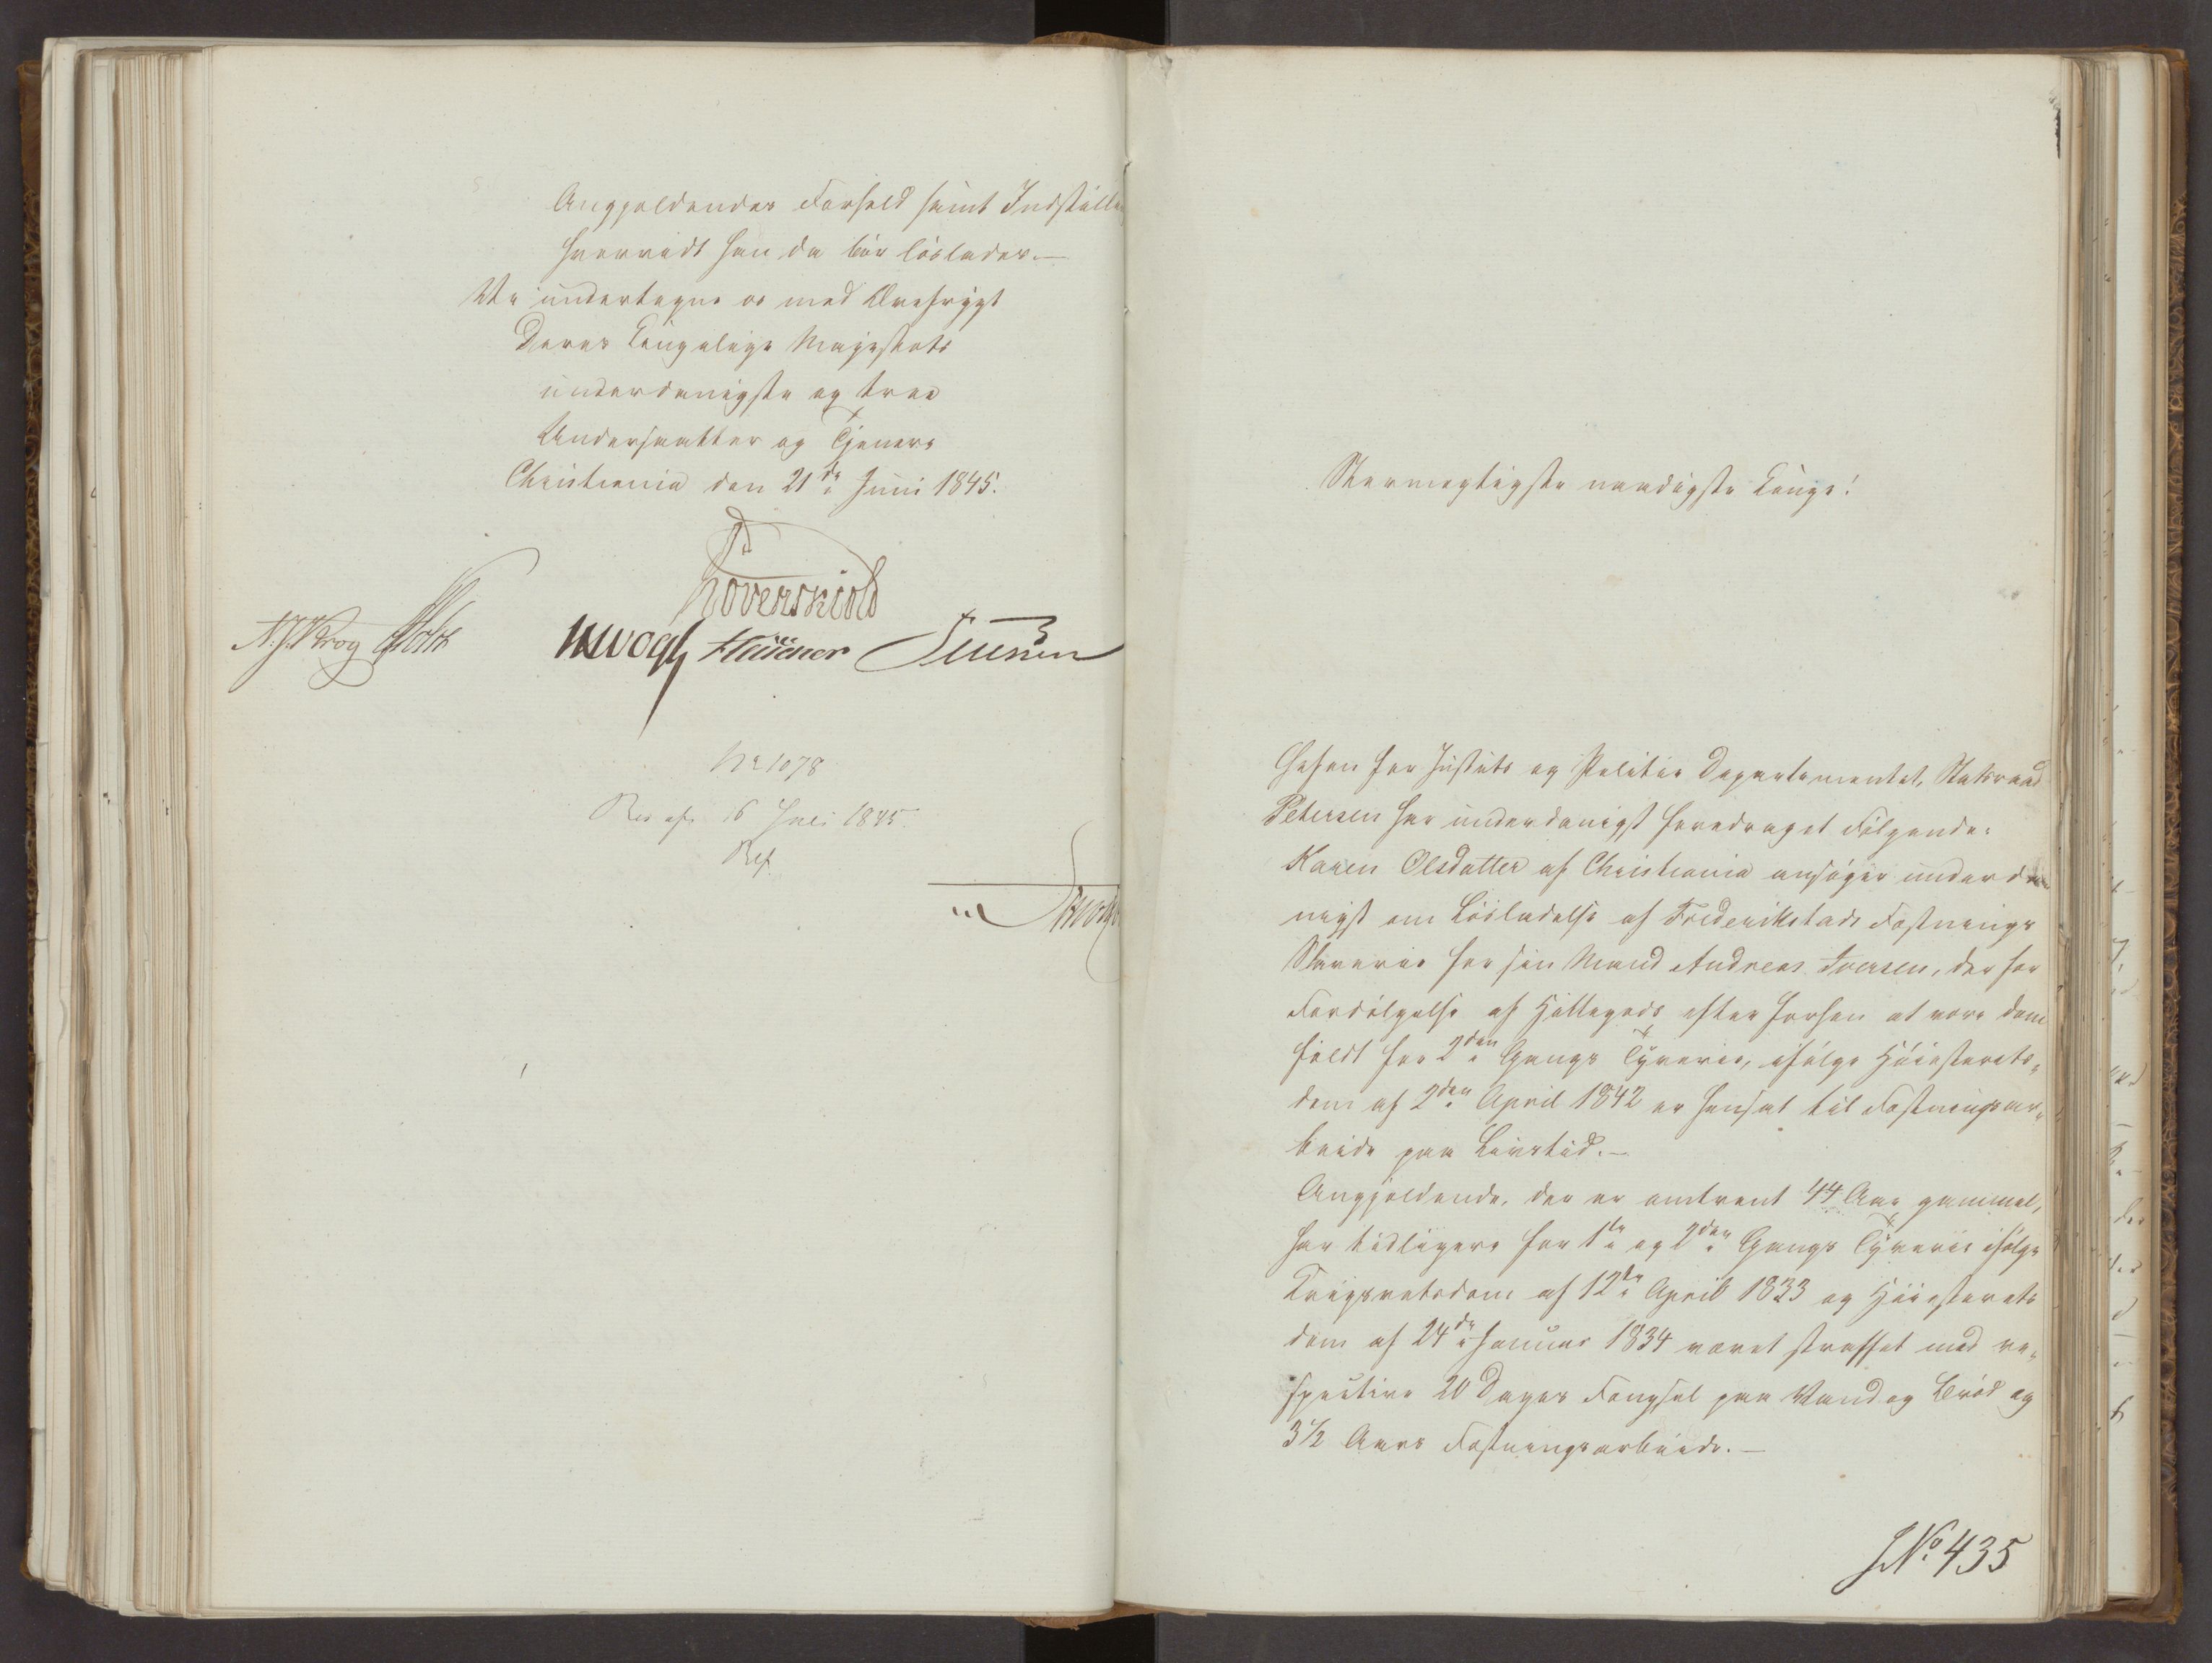 Angjældendes Forhold samt Indstille
hvorvidt han da bør løslades.—
Vi undertegne os med Ærefrygt
Deres Kongelige Majestæts
underdanigste og troe
Undersaatter og Tjenere
Christiania den 21de Juni 1845.
Løvenskiold
N. J. Krog
JHVogt Hauener Petersen
No 1078
Res af 6 Juli 1845
Ref
Stormægtigste naadigste Konge!
Chefen for Justits og Politie Departementet, Statsraad
Petersen har underdanigst foredraget Følgende:
Karen Olsdatter af Christiania ansøger underda
nigst om Løsladelse af Frederikstads Fæstnings
Slaverie for sin Mand Andreas Iversen, der for
Fordølgelse af Hittegods efter forhen at være dom
fældt for 2den Gangs Tyverie, ifølge Høiesterets-
dom af 2den April 1842 er hensat til Fæstningsar-
beide paa Livstid.—
Angjældende, der er omtrent 44 Aar gammel,
har tidligere for 1ste og 2den Gangs Tyverie ifølge
Krigsretsdom af 12te April 1833 og Høiesterets
dom af 24de Januar 1834 været straffet med re-
spective 20 Dages Fængsel paa Vand og Brød og
3½ Aars Fæstningsarbeide.—
J.No. 435